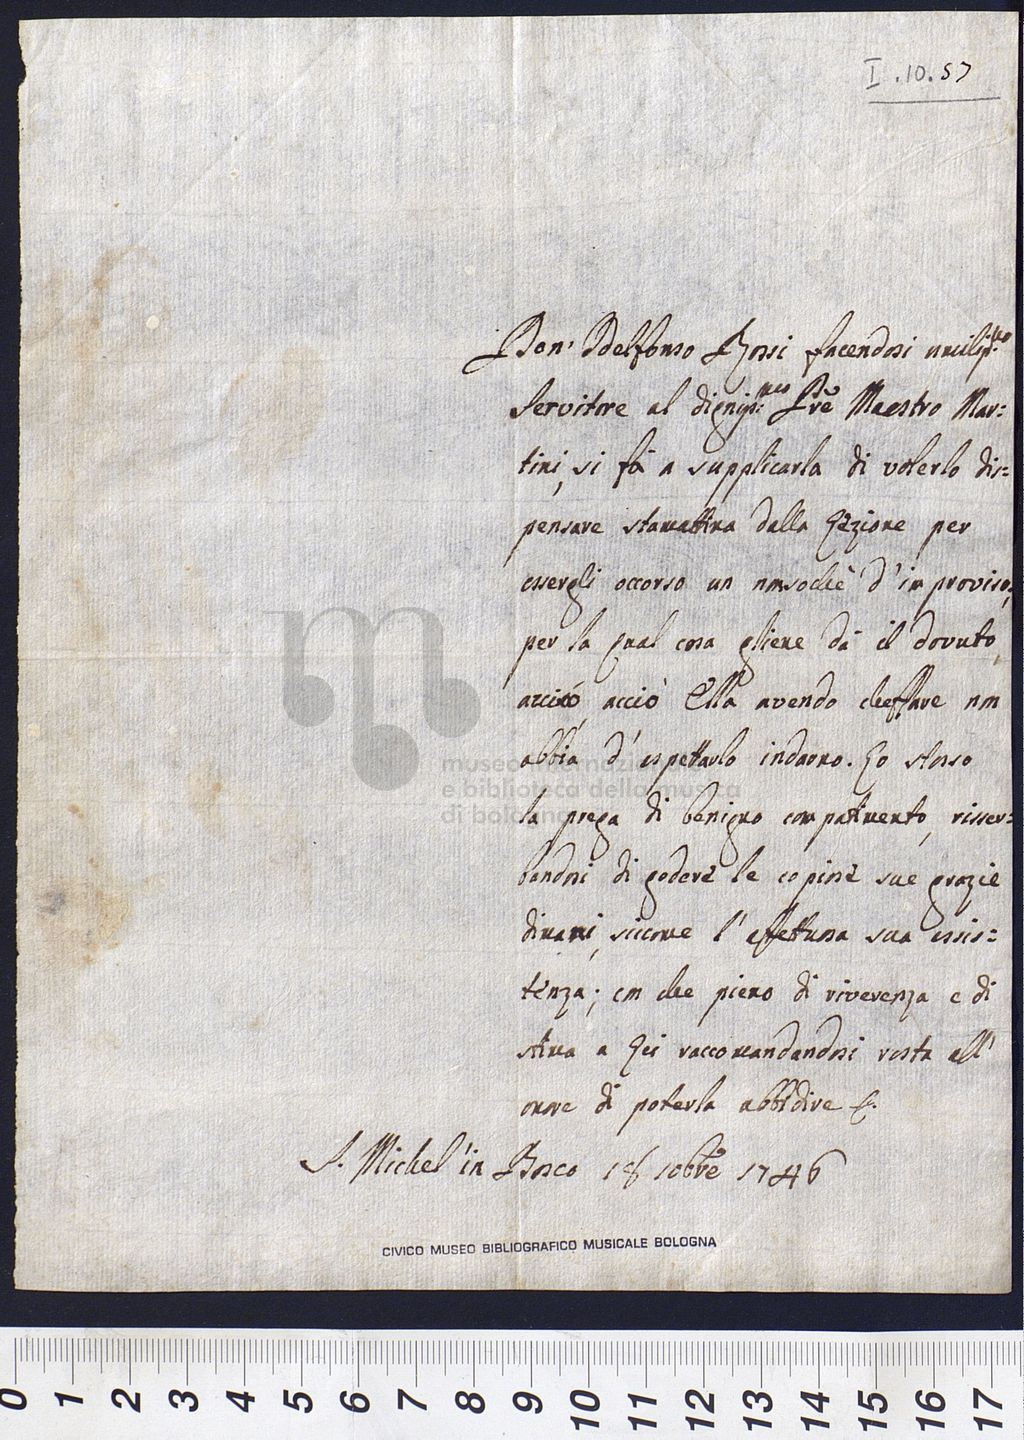 I.10.57
Don Idelfonso Rossi facendosi umilis.mo
Servitore al dignis.mo Pre Maestro Mar=
tini, si fà a supplicarla di volerlo dis=
pensare stamattina dalla Lezione per
essergli occorso un nonsochè d'improviso,
per la qual cosa gliene dà il dovuto
acciò Ella avendo cheffare non
abbia d'espettarlo indarno. Lo stesso
la prega di benigno compatimento, risser=
bandosi di godere le copiose sue grazie
dimani, siccome l'effettuosa sua assis=
tenza; con che pieno di riverenza e di
stima a Lei raccomandandosi resta all'
onore di poterla abbidire &.
S. Michel in Bosco 18 10bre 1746
CIVICO MUSEO BIBLIOGRAFICO MUSICALE BOLOGNA
museo internazionale
e biblioteca della musica
di bologna
0 1 2 3 4 5 6 7 8 9 10 11 12 13 14 15 16 17